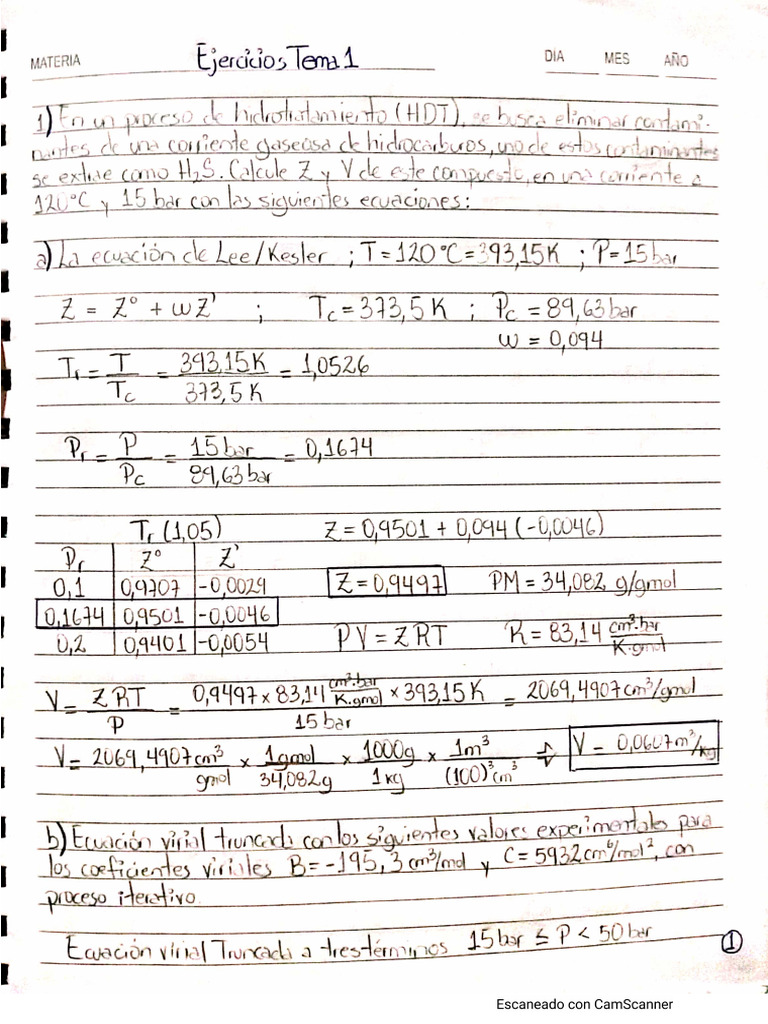 MATERIA Ejercicios Tema 1 DIA MES AÑO
1) En un proceso de hidrotratamiento (HDT), se busca eliminar contami-
nantes de una corriente gaseosa de hidrocarburos, uno de estos contaminantes
se extrae como H₂S. Calcule Z y V de este compuesto, en una corriente a
120°C y 15 bar con las siguientes ecuaciones:
a) La ecuación de Lee/Kesler ; T = 120°C = 393,15K ; P = 15 bar
Z = Z° + ωZ' ; Tc = 373,5 K ; Pc = 89,63 bar
ω = 0,094
Tr = T/Tc = 393,15K/373,5 K = 1,0526
Pr = P/Pc = 15 bar/89,63 bar = 0,1674
Tr (1,05) Z = 0,9501 + 0,094 (-0,0046)
Pr Z° Z'
0,1 0,9707 -0,0029 Z = 0,9497 PM = 34,082 g/gmol
0,1674 0,9501 -0,0046
0,2 0,9401 -0,0054 PV = ZRT R = 83,14 cm³.bar/K.gmol
V = ZRT/P = 0,9497 x 83,14 cm³.bar/K.gmol x 393,15 K/15 bar = 2069,4907 cm³/gmol
V = 2069,4907 cm³/gmol x 1gmol/34,082g x 1000g/1kg x 1m³/(100)³cm³ ⇒ V = 0,0607 m³/kg
b) Ecuación virial truncada con los siguientes valores experimentales para
los coeficientes viriales B = -195,3 cm³/mol y C = 5932 cm⁶/mol², con
proceso iterativo.
Ecuación virial Truncada a tres términos 15 bar ≤ P < 50 bar
1
Escaneado con CamScanner